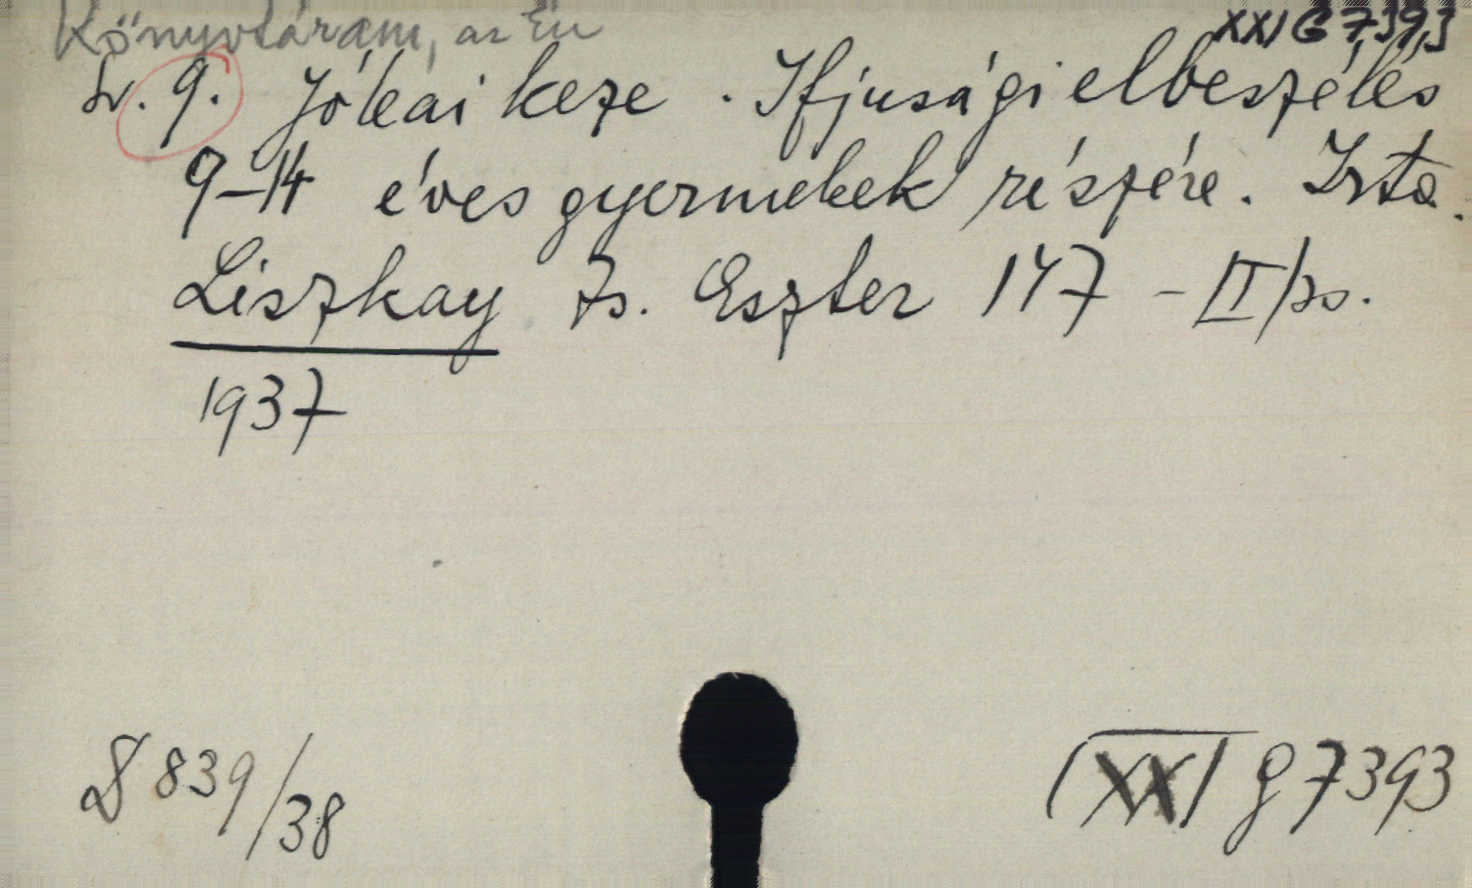 Könyvtáram, az Én
XXI G 7393
Sz. 9. Jókai keze. Ifjusági elbeszélés
9-14 éves gyermekek részére. Irta.
Liszkay Zs. Eszter 147 - II/zs.
1937
S 839/38
(XX) G 7393